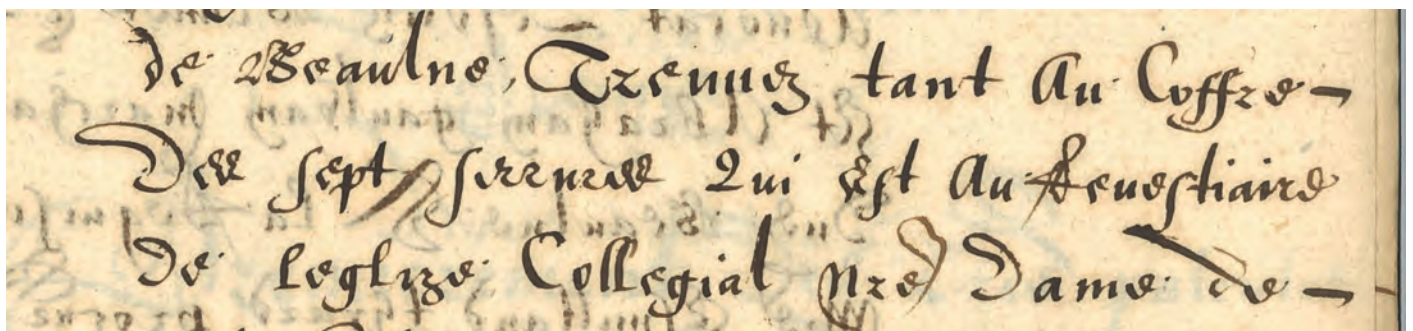 de Beaulne, Treuuez tant Au Coffre
Des sept serrures Qui Est Au Reuestiaire
De leglize Collegial nre Dame de